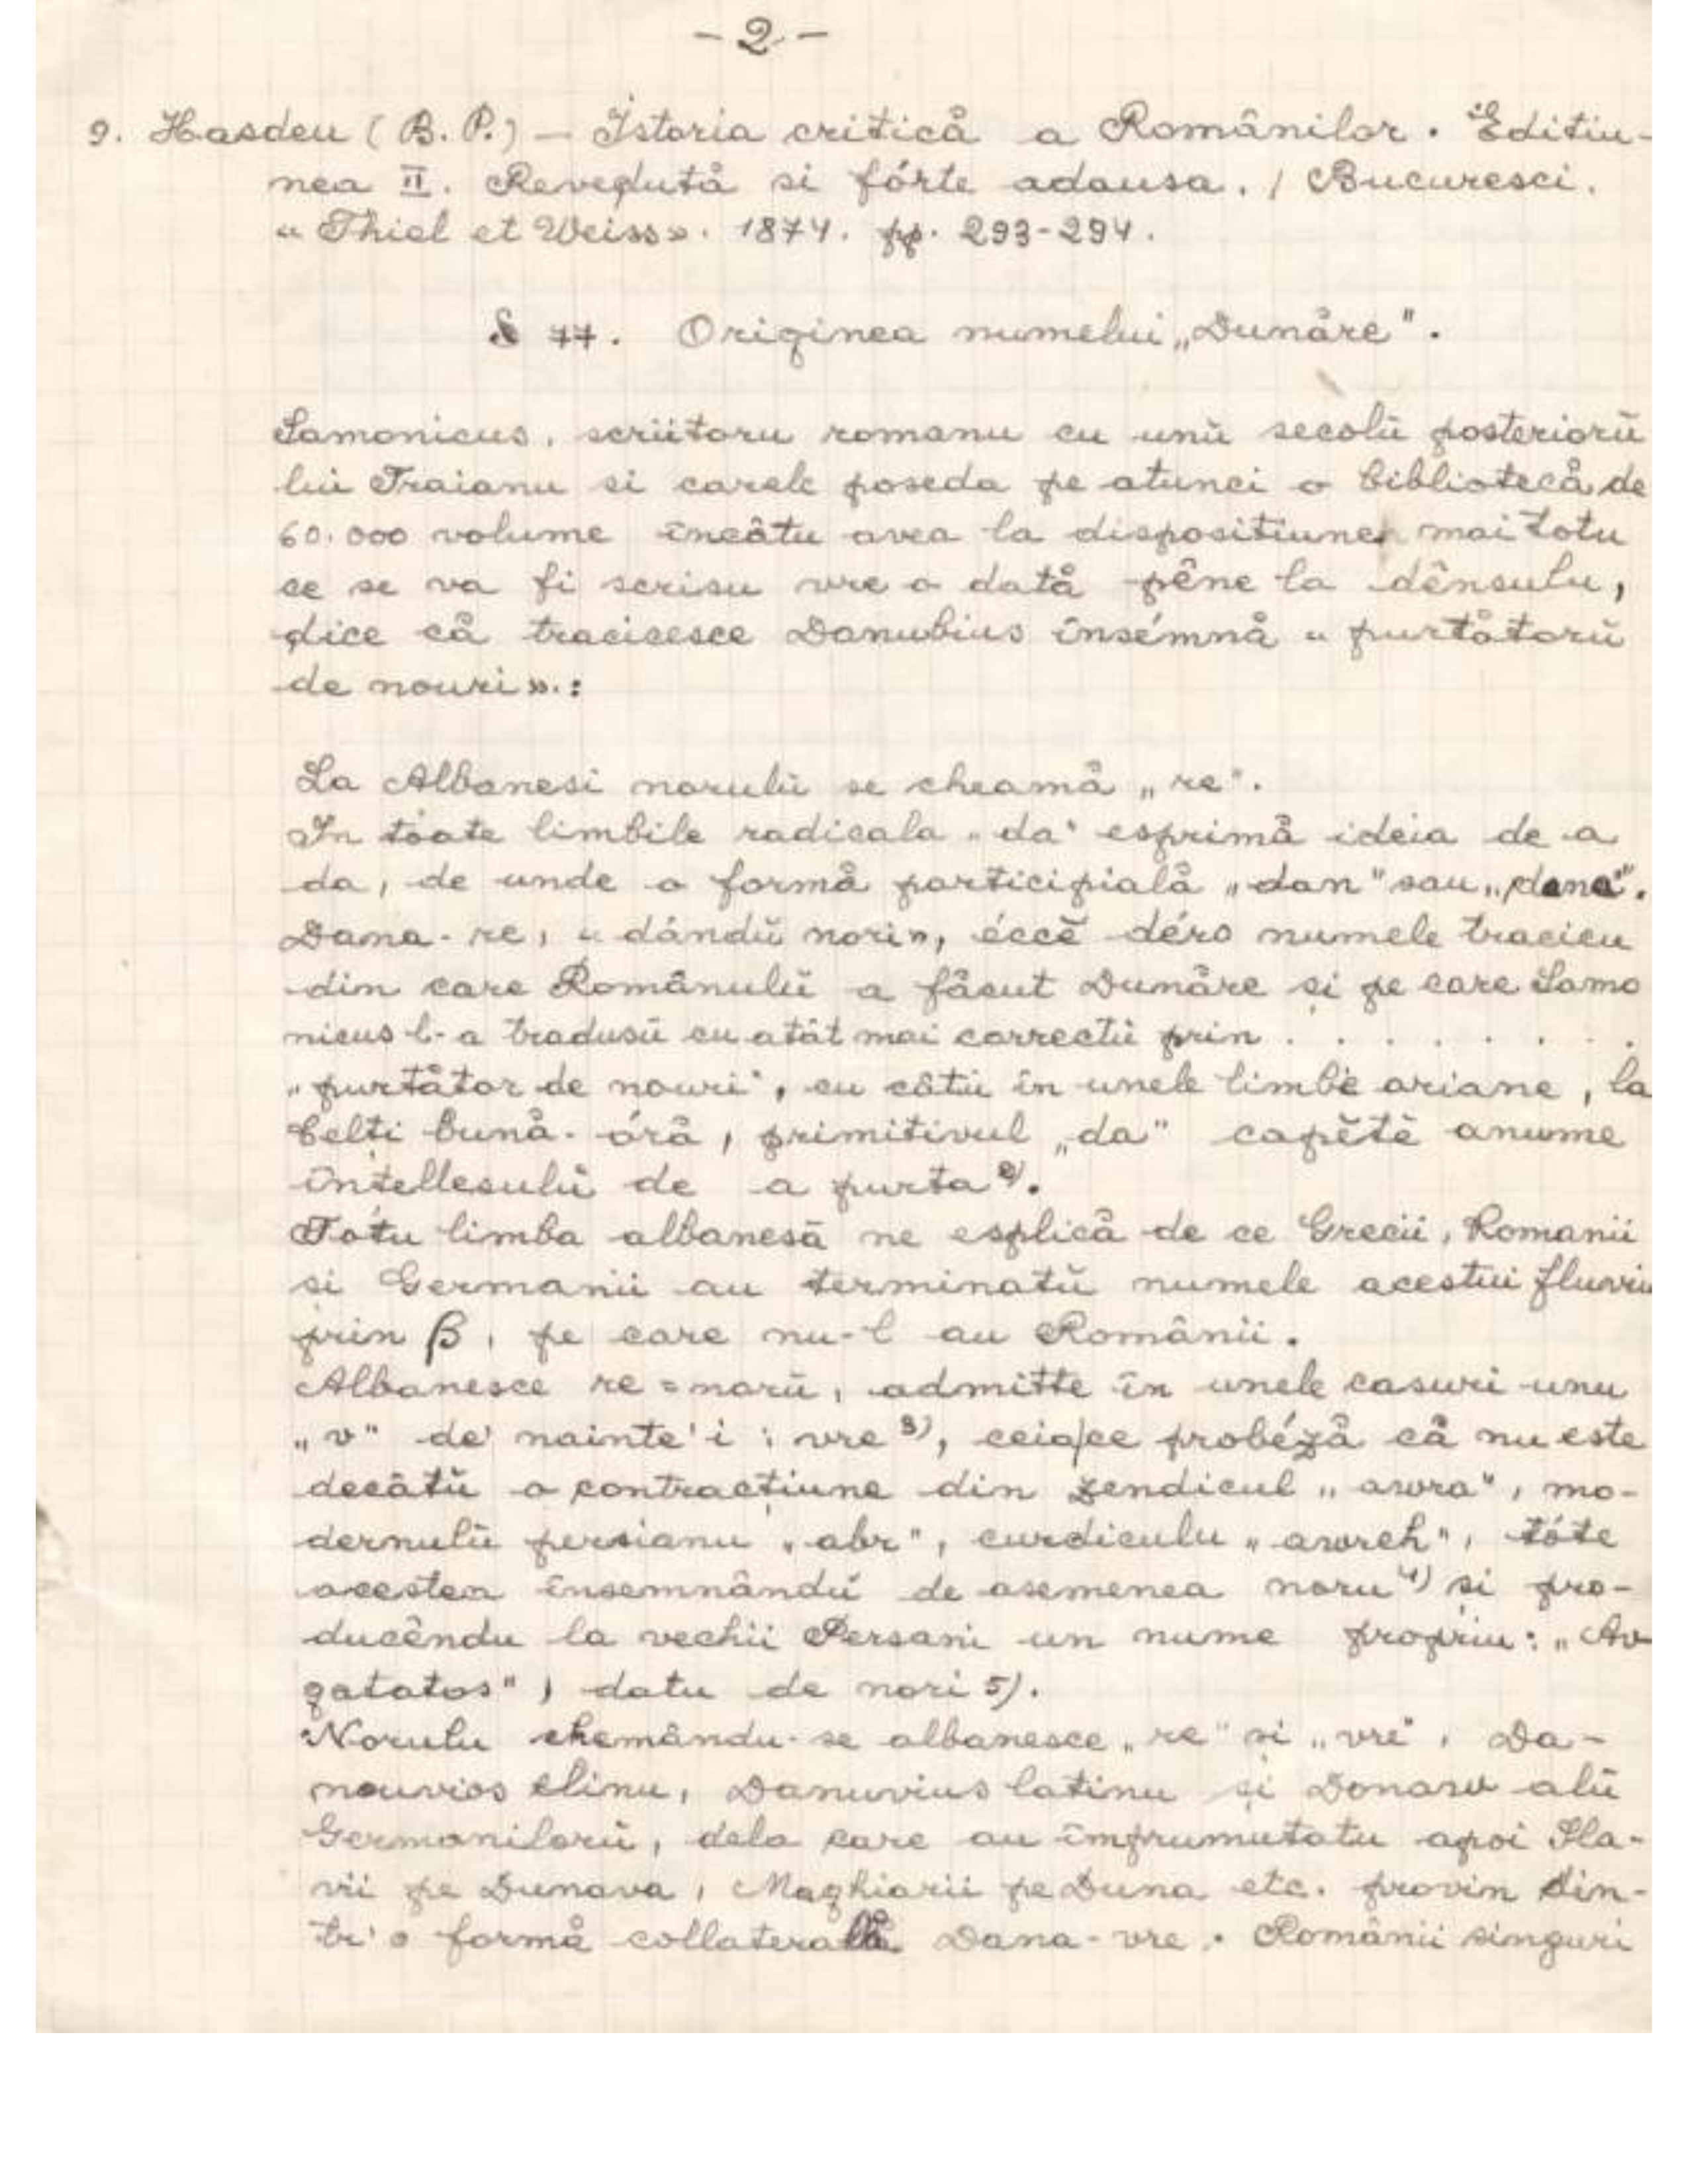 - 2 -
9. Hasdeu (B. P.) - Istoria critică a Românilor. Editiu-
nea II. Revedută si fórte adausa. / Bucuresci.
« Thiel et Weiss». 1874. pp. 293-294.
§ 77. Originea numelui „Dunăre".
Samonicus, scriitoru romanu cu unŭ secolŭ posteriorŭ
lui Traianu si carele poseda pe atunci o bibliotecă de
60.000 volume încâtu avea la dispositiune mai totu
ce se va fi scrisu vre o dată pêne la dênsulu,
dice că tracicesce Danubius însémnă « purtătorŭ
de nouri».:
La Albanesi norulŭ se cheamă „re".
In toate limbile radicala „da" esprimă ideia de a
da, de unde o formă participială „dan" sau „dana".
Dana-re, « dândŭ nori», éccĕ déro numele tracicu
din care Românulŭ a făcut Dunăre și pe care Samo
nicus l-a tradusŭ cu atât mai correctŭ prin . . . . . . . .
„purtător de nouri", cu câtŭ în unele limbe ariane, la
Celți bună-óră, primitivul „da" capĕtĕ anume
înțellesulŭ de a purta 2).
Totu limba albanesă ne esplică de ce Grecii, Romanii
si Germanii au terminatŭ numele acestui fluviu
prin β, pe care nu-l au Românii.
Albanesce re = norŭ, admitte în unele casuri unu
„v" de' nainte'i : vre 3), ceiace probéză că nu este
decâtŭ o contracțiune din zendicul „awra", mo-
dernulŭ persianu „abr", curdiculu „awreh", tóte
acestea însemnândŭ de asemenea noru 4) si pro-
ducêndu la vechii Persani un nume propriu: „Av
gatatos", datu de nori 5).
Norulu chemându-se albanesce „re" si „vre", Da-
nouvios elinu, Danuvius latinu și Donaw alŭ
Germanilorŭ, dela care au împrumutatu apoi Sla-
vii pe Dunava, Maghiarii pe Duna etc. provin din-
tr'o formă collaterală Dana-vre. Românii singuri